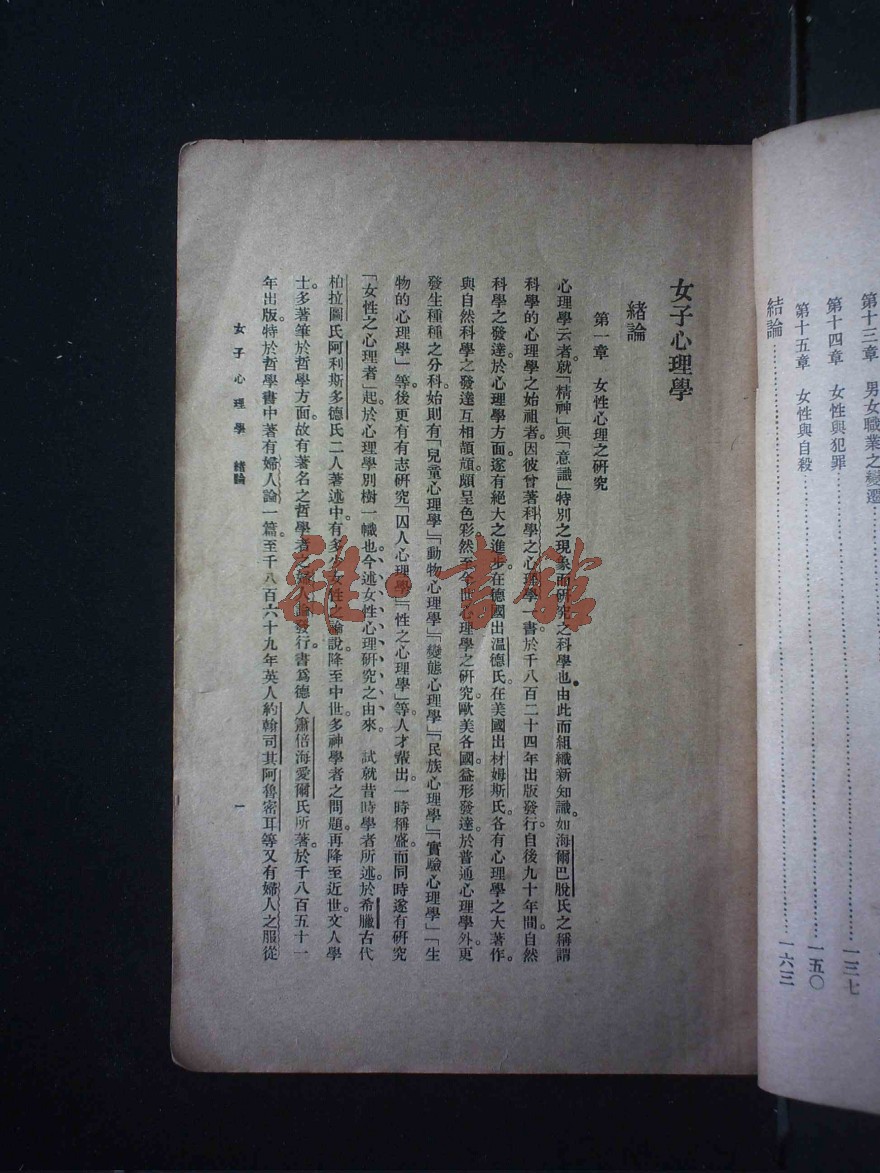 第十三章 男女職業之變遷
第十四章 女性與犯罪 一三七
第十五章 女性與自殺 一五〇
結論 一六三
女子心理學
緒論
第一章 女性心理之研究
心理學云者。就「精神」與「意識」特別之現象而研究之科學也。由此而組織新知識。如海爾巴脫氏之稱謂
科學的心理學之始祖者。因彼曾著科學之心理學一書。於千八百二十四年出版發行。自後九十年間。自然
科學之發達。於心理學方面。遂有絕大之進步。在德國出溫德氏。在美國出材姆斯氏。各有心理學之大著作。
與自然科學之發達互相頡頏。頗呈色彩。然至今世心理學之研究。歐美各國。益形發達。於普通心理學外。更
發生種種之分科。始則有「兒童心理學」「動物心理學」「變態心理學」「民族心理學」「實驗心理學」「生
物的心理學」等。後更有有志研究「囚人心理學」「性之心理學」等。人才輩出。一時稱盛。而同時遂有研究
「女性之心理者」起。於心理學別樹一幟也。今述女性心理研究之由來。 試就昔時學者所述。於希臘古代
柏拉圖氏阿利斯多德氏二人著述中。有多少女性之論說。降至中世。多神學者之問題。再降至近世。文人學
士。多著筆於哲學方面。故有著名之哲學者之婦人論發行。書爲德人蕭倍海愛爾氏所著。於千八百五十一
年出版。特於哲學書中著有婦人論一篇。至千八百六十九年。英人約翰司其阿魯密耳等又有婦人之服從
女子心理學 緒論
一
雜·書館